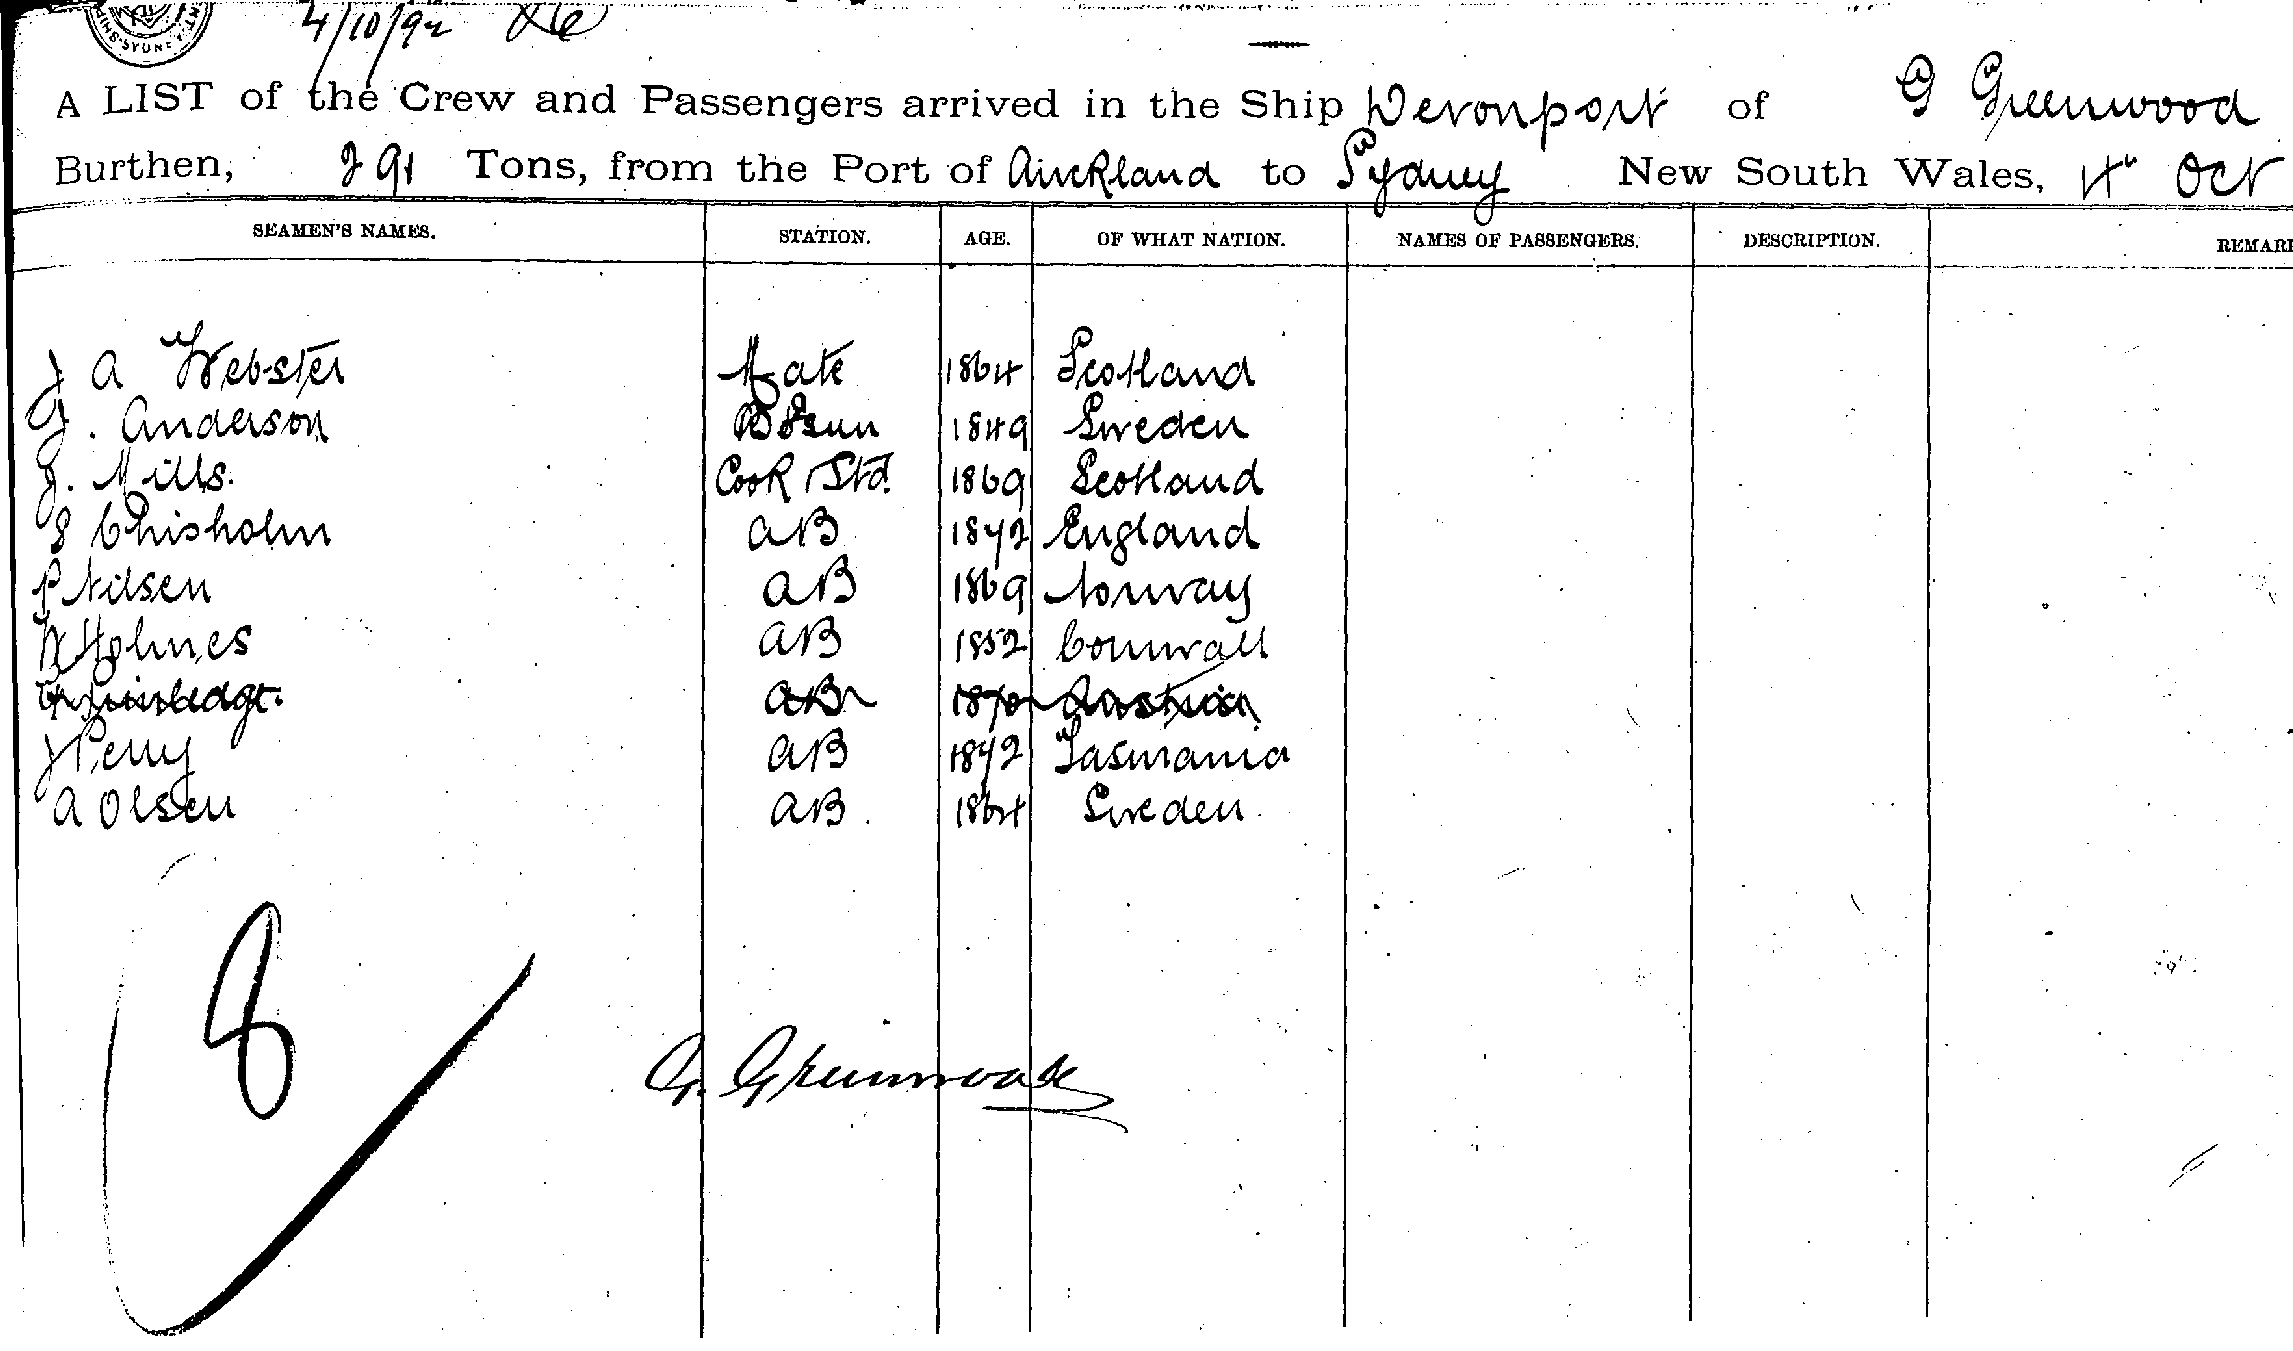 SYDNEY
4/10/92
A LIST of the Crew and Passengers arrived in the Ship Devonport of G Greenwood
Burthen, 291 Tons, from the Port of Auckland to Sydney New South Wales, 4th Oct
SEAMEN'S NAMES. STATION. AGE. OF WHAT NATION. NAMES OF PASSENGERS. DESCRIPTION. REMAR
J A Webster Mate 1864 Scotland
J. Anderson Bosun 1849 Sweden
J. Mills. Cook & Std. 1869 Scotland
Chisholm AB 1872 England
P Nilsen AB 1869 Norway
W Holmes AB 1852 Cornwall
AB 1870 Austria
J Perry AB 1872 Tasmania
A Olsen AB 1864 Sweden
8
G. Greenwood